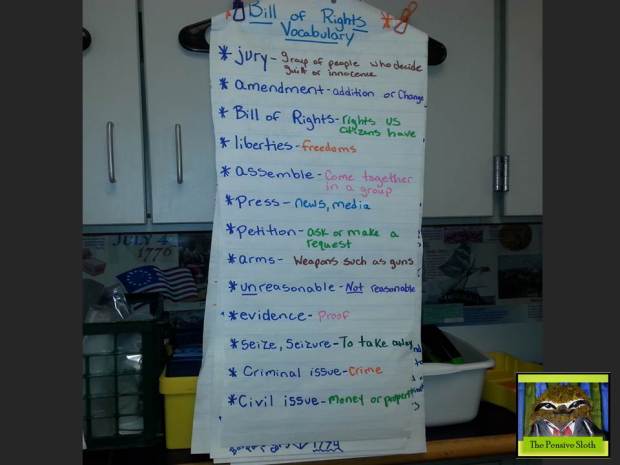 Bill of Rights
Vocabulary
* jury - group of people who decide
guilt or innocence
* amendment - addition or change
* Bill of Rights - rights US
citizens have
* liberties - freedoms
* assemble - Come together
in a group
* Press - news, media
* Petition - ask or make a
request
* arms - weapons such as guns
* unreasonable - Not reasonable
* evidence - Proof
* Seize, Seizure - To take away
* Criminal issue - Crime
* Civil issue - Money or property
JULY 4
1776
The Pensive Sloth